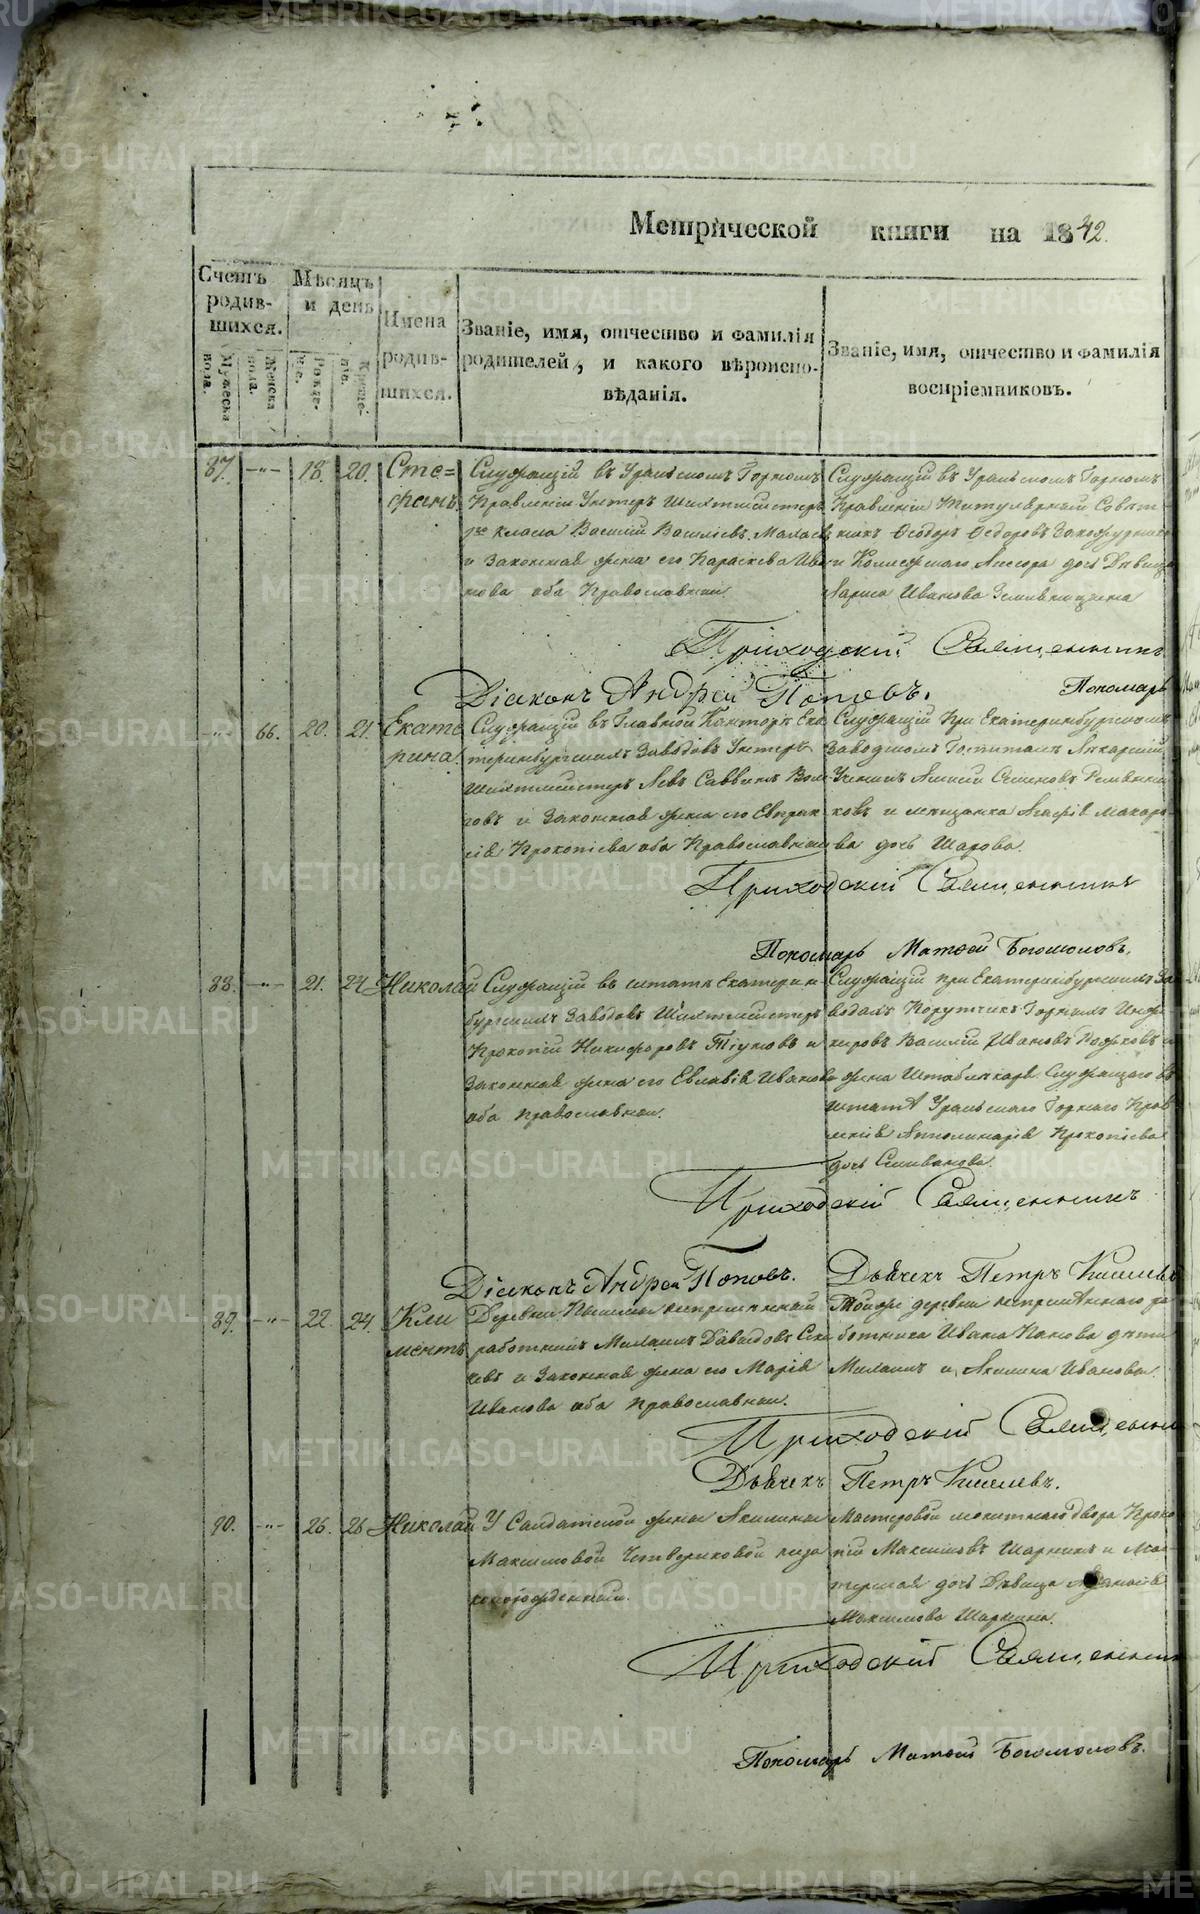 Метрической книги на 1842.
Счетъ родив-шихся.
Мѣсяцъ и день
Имена родив-шихся.
Званіе, имя, отчество и фамилія родителей, и какого вѣроиспо-вѣданія.
Званіе, имя, отчество и фамилія воспріемниковъ.
Мужеска пола.
Женска пола.
Рожде-нія.
Креще-нія.
87. -"- 18. 20. Сте=фанъ
Служащій въ Уральскомъ Горномъ
Правленіи Унтеръ Шихтмейстеръ
класа Василій Васильевъ
и Законная жена его Параскева Ива
нова оба Православныи
Служащій въ Уральскомъ Горномъ
Правленіи Титулярный Совѣт
никъ Ѳеодоръ Ѳедоровъ
и Коллежскаго Ассесора дочь Дѣвица
Лариса Иванова
Приходскій Священникъ
Діаконъ Андрей Поповъ. Пономарь
-"- 66. 20. 21. Екате
рина.
Служащій въ Главной Канторѣ Ека
теринбургскихъ Заводовъ Унтеръ
Шихтмейстеръ Левъ Саввинъ
говъ и Законная жена его Евпрак
сія Прокопіева оба Православныи
Служащій При Екатеринбургскомъ
Заводскомъ Госпиталѣ Лекарскій
Ученикъ Алексѣй Семеновъ
ковъ и мещанка Агафія Макаро
ва дочь Шарова.
Приходскій Священникъ
Пономарь Матѳей Богомоловъ.
88. -"- 21. 24 Николай
Служащій въ штатѣ Екатерин
бургскихъ Заводовъ Шихтмейстеръ
Прокопій Никифоровъ Тіуновъ и
Законная жена его Евлавія Иванова
оба православныи.
Служащій при Екатеринбургскихъ За
водахъ Порутчикъ Горныхъ Инже
неровъ Василій Ивановъ Рожковъ и
жена Штаблекаря Служащаго въ
штатѣ Уральскаго Горнаго Прав
ленія Апполинарія Прокопіева
дочь
Приходскій Священникъ
Діаконъ Андрей Поповъ. Дьячекъ Петръ Киселевъ
89. -"- 22. 24. Кли
ментъ
Деревни непремѣнный
работникъ Михаилъ Давыдовъ
и Законная жена его Марія
Иванова оба православныи.
Тойже деревни непремѣннаго ра
ботника Ивана Панова дѣти
Михаилъ и Акилина Ивановы.
Приходскій Священни
Дьячекъ Петръ Киселевъ.
90. -"- 26. 26 Николай
У Салдатской жены Акилины
Максимовой Четвериковой неза
коннорожденный.
Мастеровой монетнаго двора Проко
пій Максимовъ Шаркинъ и Мас
терская дочь Дѣвица
Максимова Шаркина.
Приходскій Священник
Пономарь Матѳей Богомоловъ.
METRIKI.GASO-URAL.RU